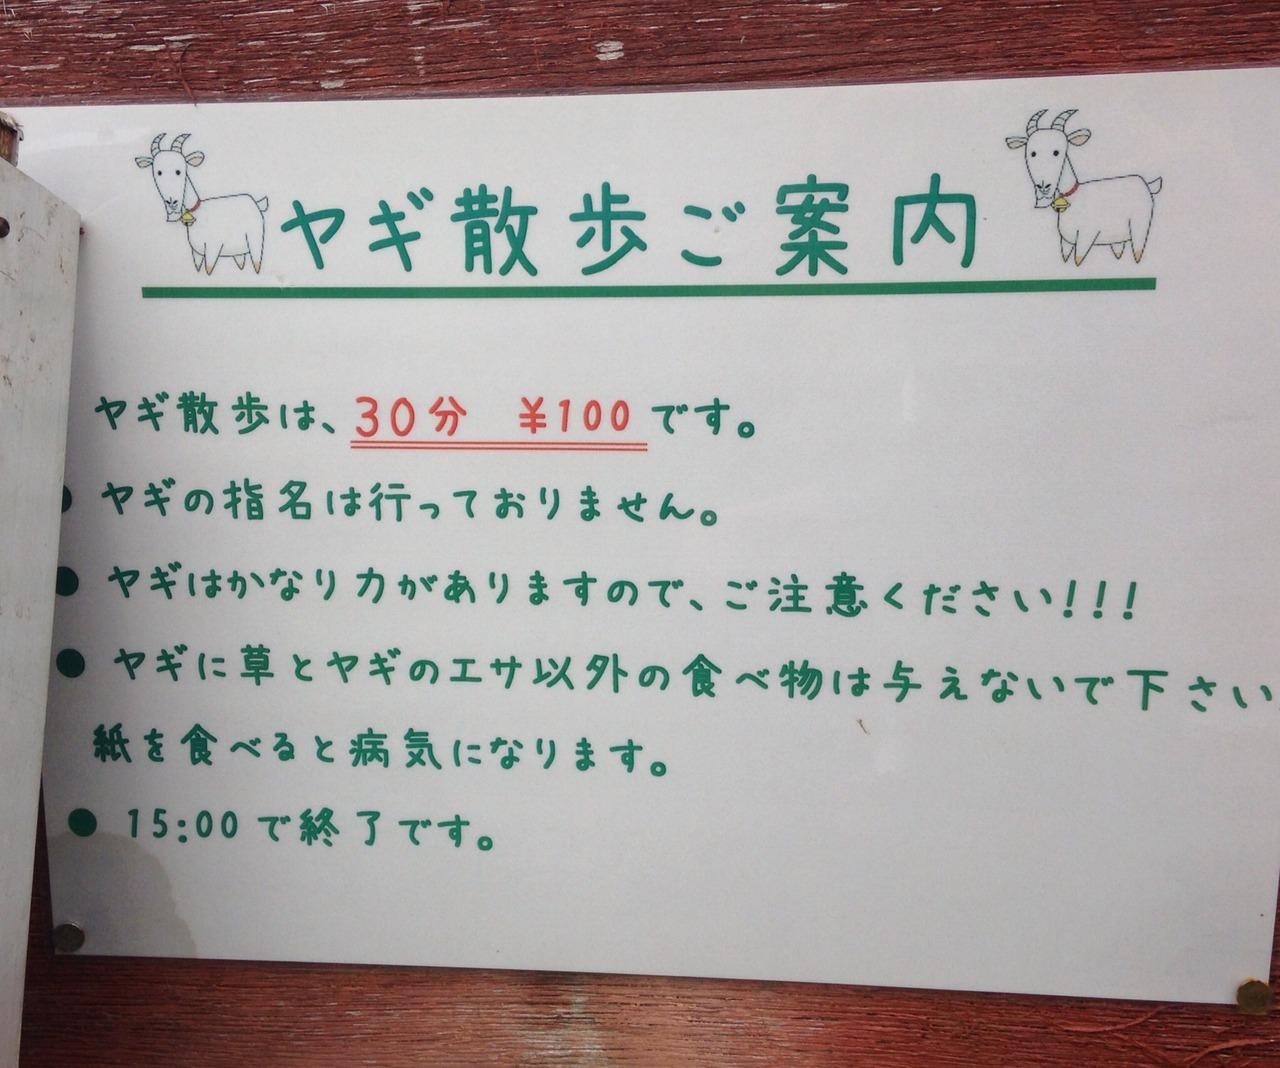 ヤギ散歩ご案内
ヤギ散歩は、30分　¥100です。
● ヤギの指名は行っておりません。
● ヤギはかなり力がありますので、ご注意ください!!!
● ヤギに草とヤギのエサ以外の食べ物は与えないで下さい
紙を食べると病気になります。
● 15:00で終了です。